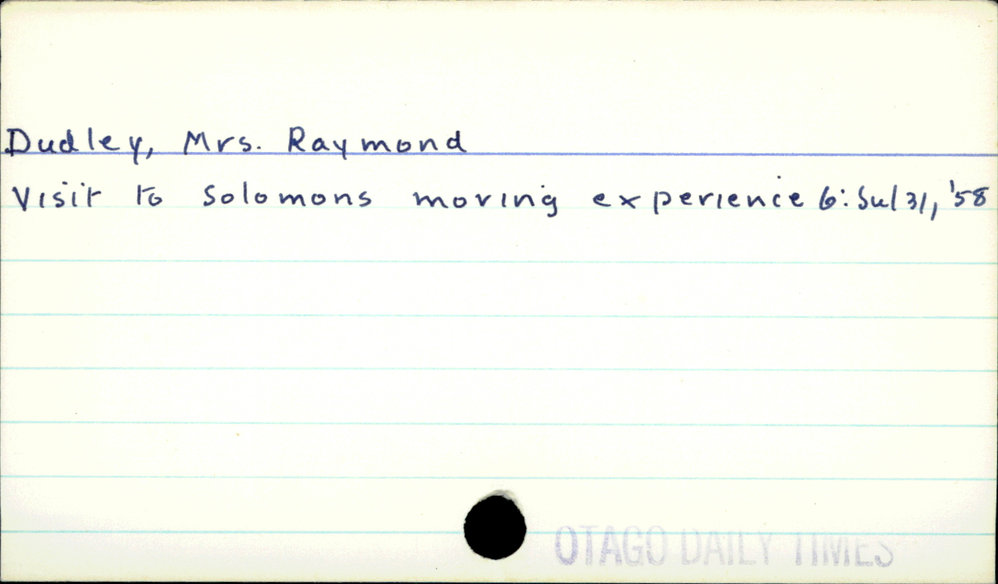 Dudley, Mrs. Raymond
Visit to Solomons moving experience 6: Jul 31, '58
OTAGO DAILY TIMES